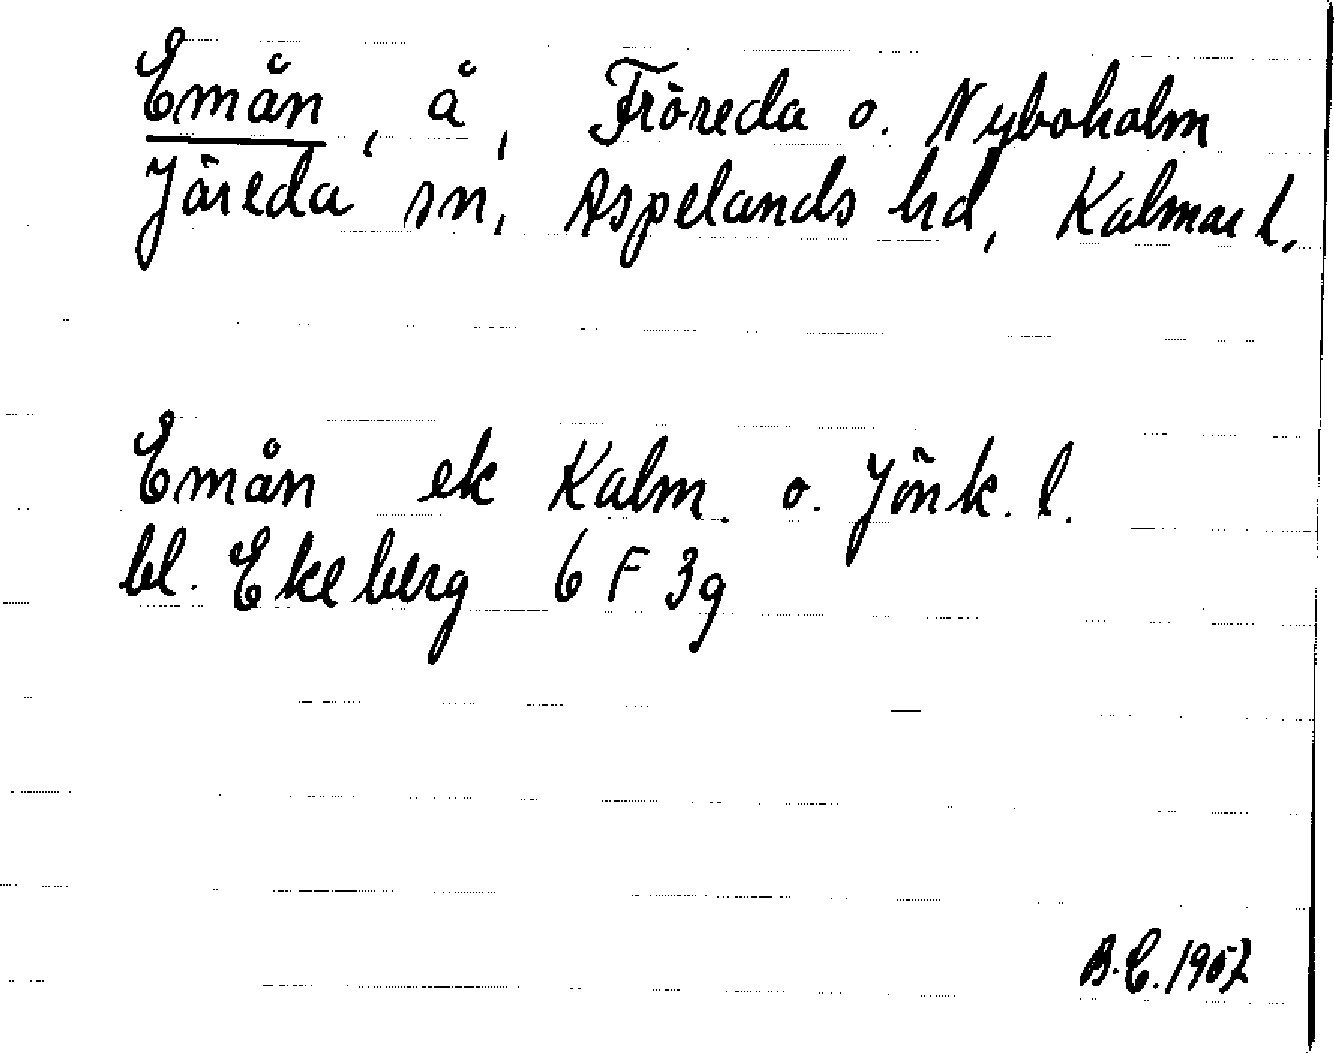 Emån, å, Fröreda o. Nyboholm
Järeda sn, Aspelands hd, Kalmar l.
Emån ek Kalm. o. Jönk. l.
bl. Ekeberg 6 F 3g
B.E. 1957